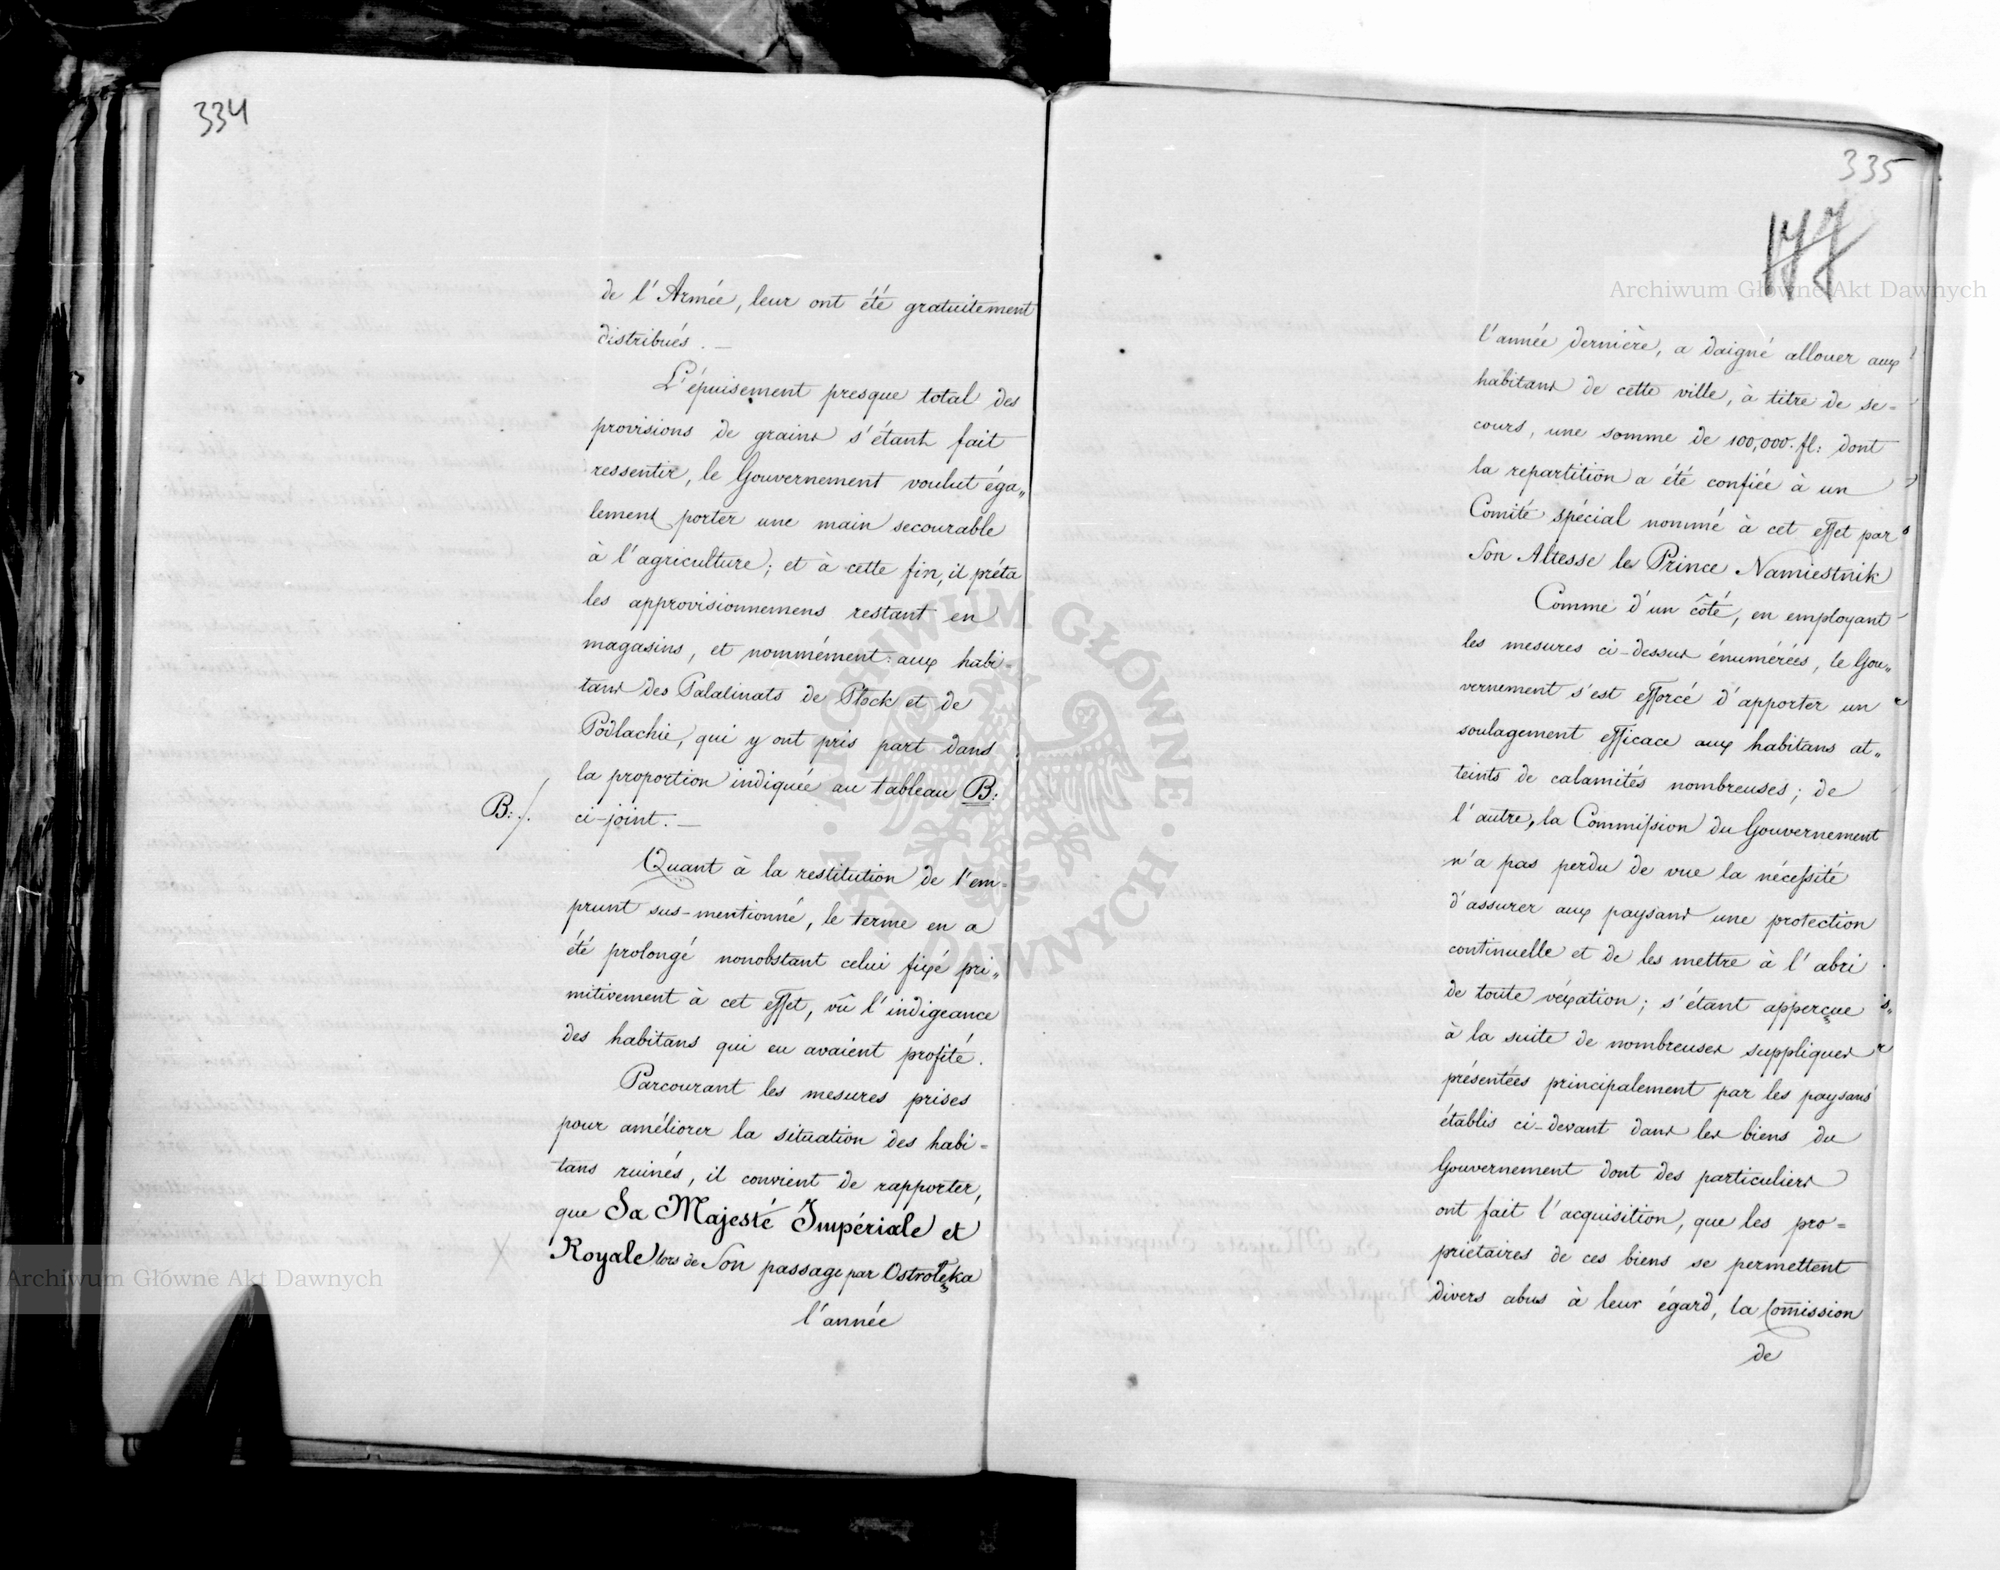 334
de l'Armée, leur ont été gratuitement
distribués. —
L'épuisement presque total des
provisions de grains s'étant fait
ressentir, le Gouvernement voulut éga„
lement porter une main secourable
à l'agriculture; et à cette fin, il prêta
les approvisionnemens restant en
magasins, et nommément aux habi-
tans des Palatinats de Płock et de
Podlachie, qui y ont pris part dans
la proportion indiquée au tableau B:
B:/. ci-joint. —
Quant à la restitution de l'em-
prunt sus-mentionné, le terme en a
été prolongé nonobstant celui fixé pri„
mitivement à cet effet, vû l'indigeance
des habitans qui en avaient profité.
Parcourant les mesures prises
pour améliorer la situation des habi-
tans ruinés, il convient de rapporter,
que Sa Majesté Impériale et
Royale lors de Son passage par Ostrołęka
l'année
335
177
l'année dernière, a daigné allouer aux
habitans de cette ville, à titre de se-
cours, une somme de 100,000. fl: dont
la repartition a été confiée à un
Comité spécial nommé à cet effet par
Son Altesse le Prince Namiestnik
Comme d'un côté, en employant
les mesures ci-dessus énumérées, le Gou„
vernement s'est efforcé d'apporter un
soulagement efficace aux habitans at„
teints de calamités nombreuses; de
l'autre, la Commission du Gouvernement
n'a pas perdu de vue la nécessité
d'assurer aux paysans une protection
continuelle et de les mettre à l'abri
de toute véxation; s'étant apperçue
à la suite de nombreuses suppliques
présentées principalement par les paysans
établis ci-devant dans les biens du
Gouvernement dont des particuliers
ont fait l'acquisition, que les pro-
priétaires de ces biens se permettent
divers abus à leur égard, la Com̄ission
de
Archiwum Główne Akt Dawnych
Archiwum Główne Akt Dawnych
ARCHIWUM GŁÓWNE AKT DAWNYCH